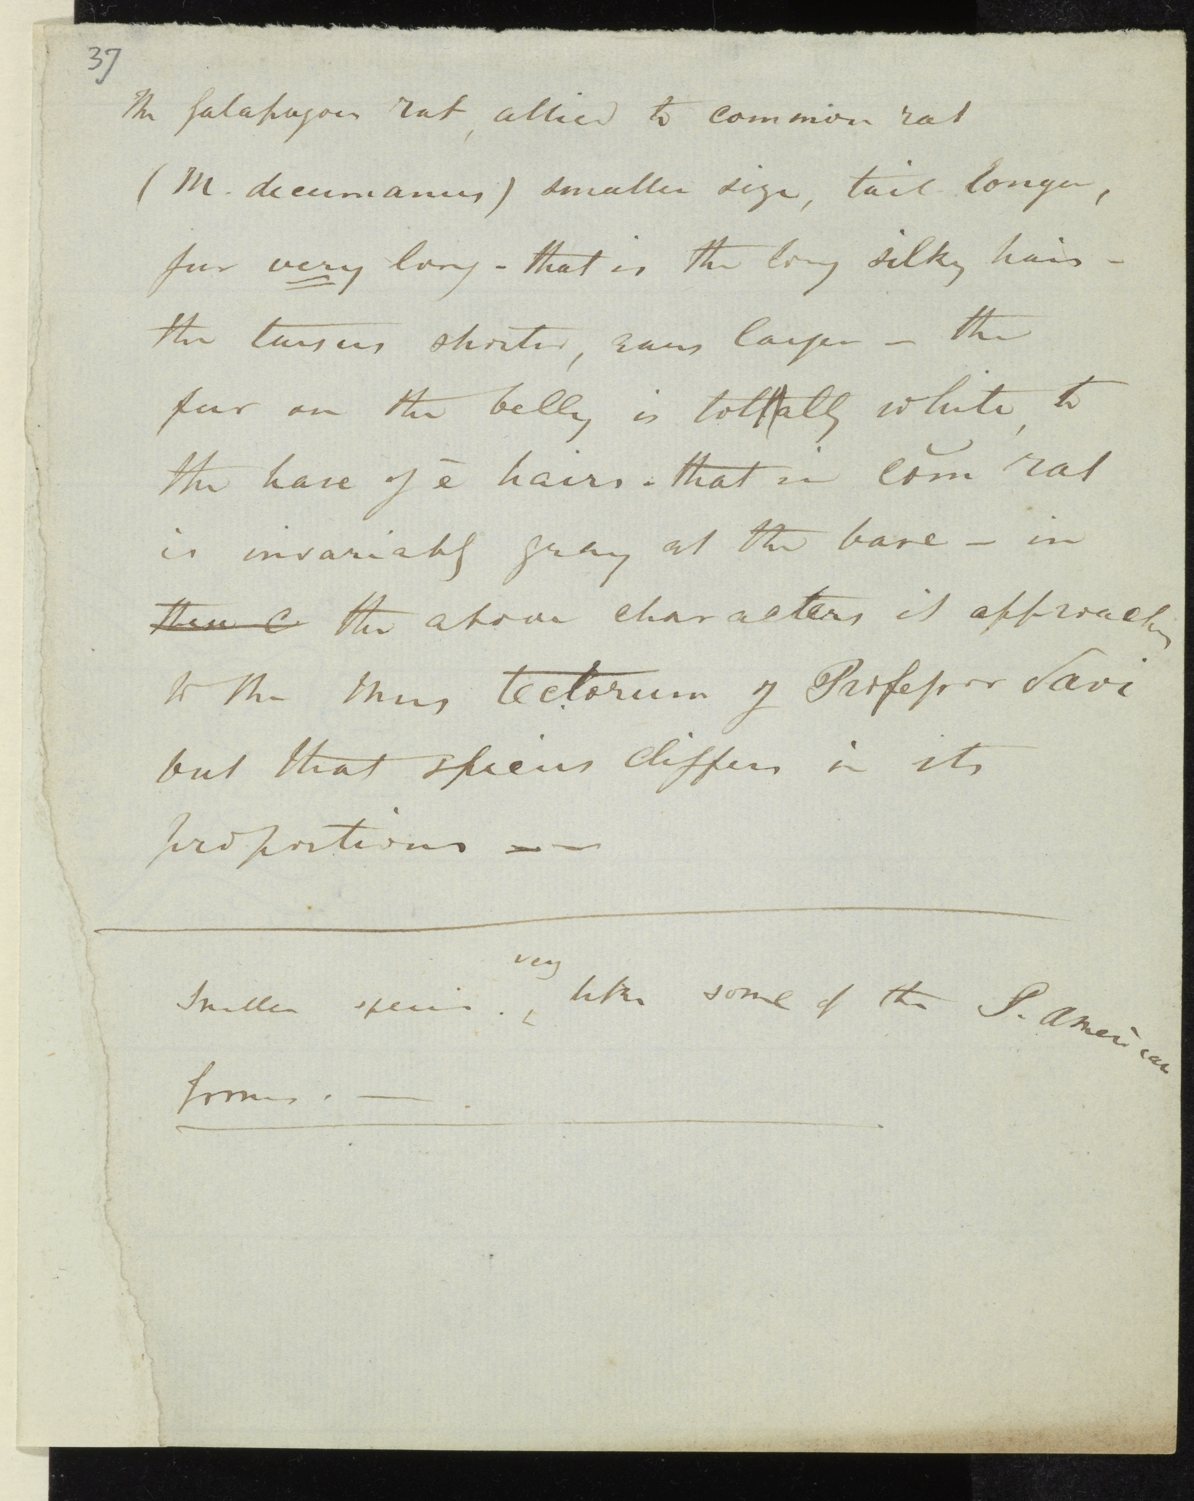 37
The Galapagos rat, allied to common rat
(M. decumanus) smaller size, tail longer,
fur very long - that is the long silky hairs -
the tarsus shorter, ears larger - the
fur on the belly is totally white, to
the base of ē hairs. that in com̆ rat
is invariably gray at the base - in
the above characters it approaches
to the Mus tectorum of Professor Savi
but that species differs in its
proportions — —
very
Smaller species. ‸ like some of the S. American
forms. —